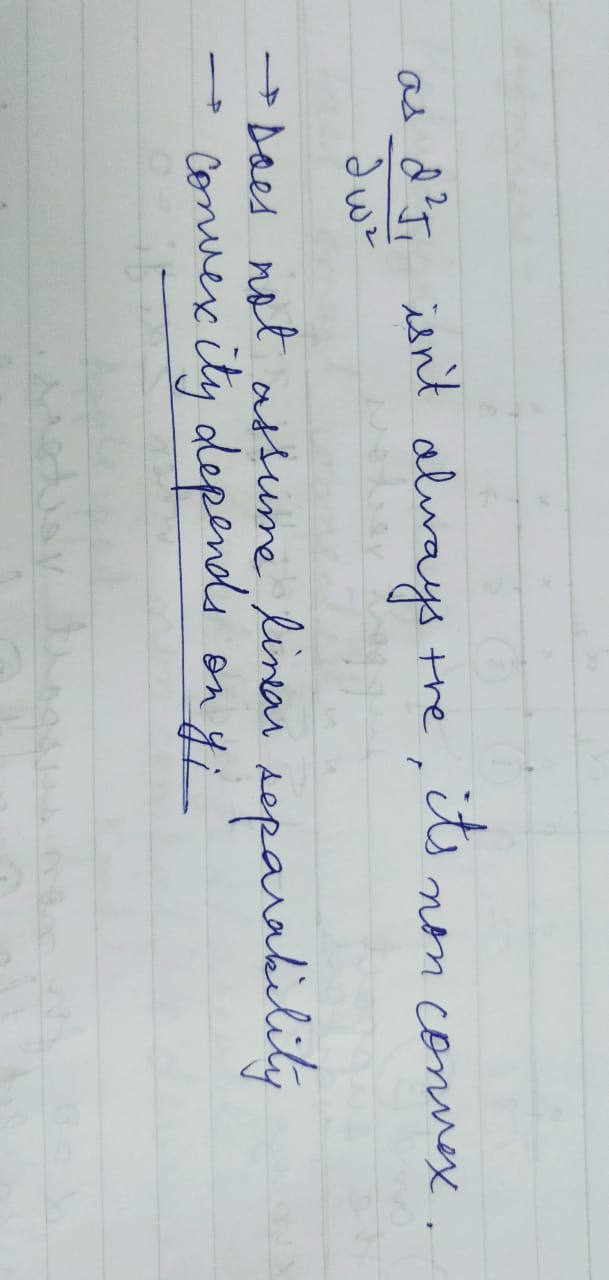 as ∂²J₁/∂w² isn't always +ve, its non convex.
→ Does not assume linear separability
→ Convexity depends on yi